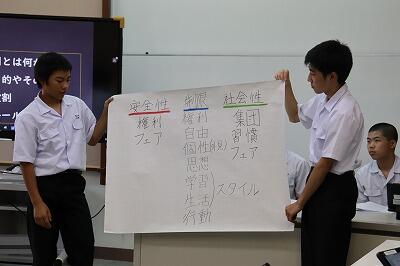 安全性
権利
フェア
制限
権利
自由
個性(外見)
思想
学習
生活
行動
スタイル
社会性
集団
習慣
フェア
とは何か
的やその
割